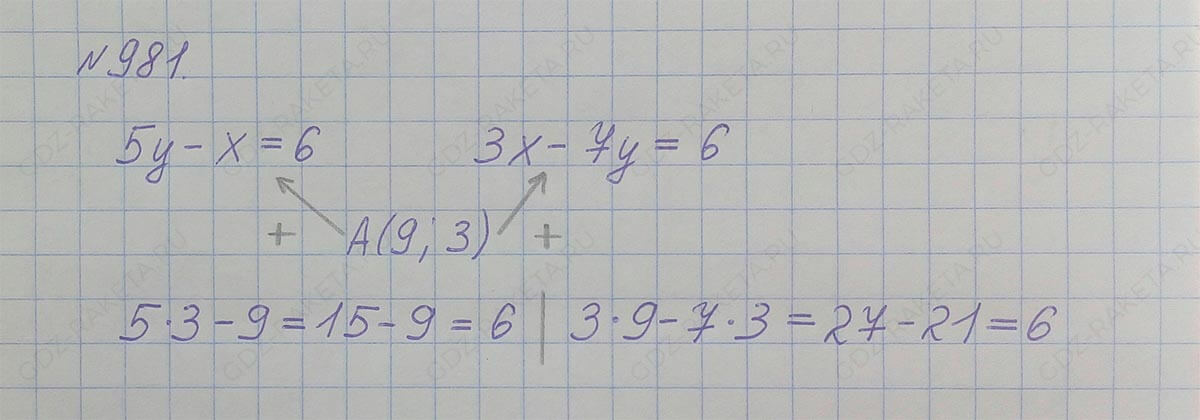 №981.
5y - x = 6 3x - 7y = 6
+ A(9; 3) +
5·3 - 9 = 15 - 9 = 6 | 3·9 - 7·3 = 27 - 21 = 6
GDZ-RAKETA.RU